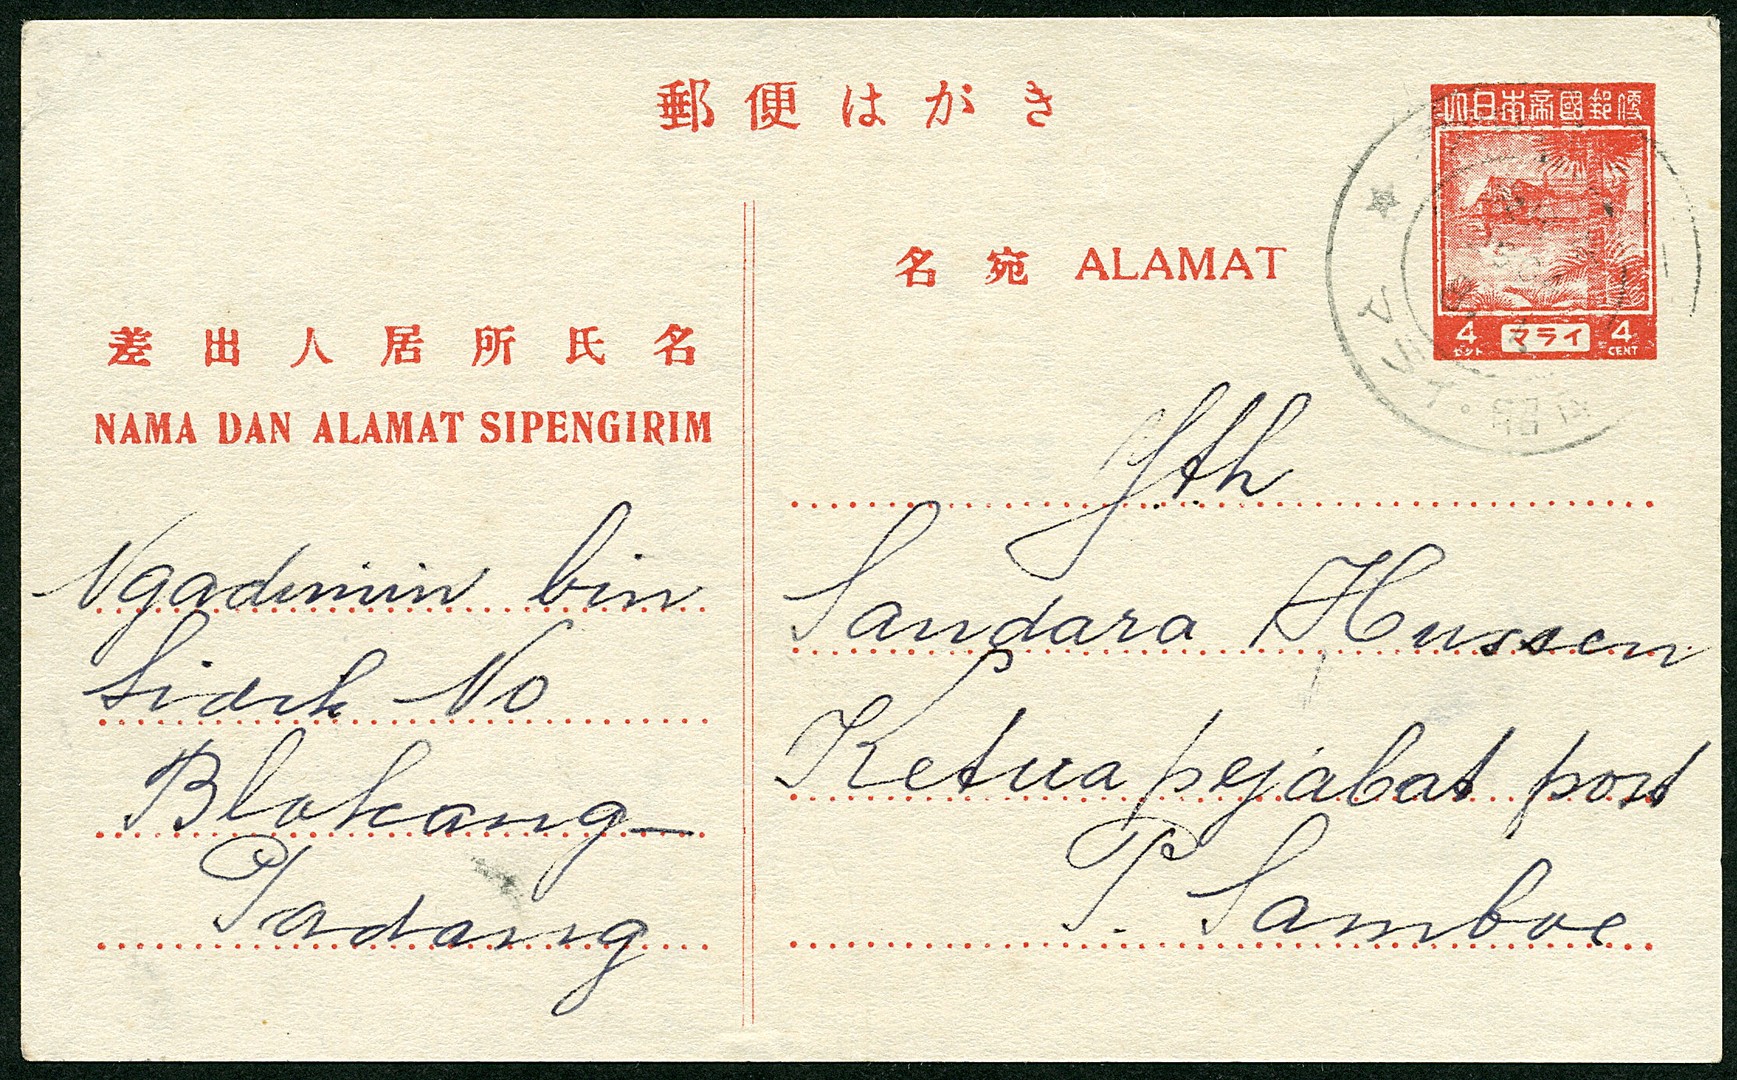 郵便はがき
大日本帝國郵便
4 マライ 4
セント CENT
名宛 ALAMAT
差出人居所氏名
NAMA DAN ALAMAT SIPENGIRIM
Ngadimin bin
Sidek No
Blakang
Padang
Yth
Sandara Hussen
Ketua pejabat post
P. Samboe